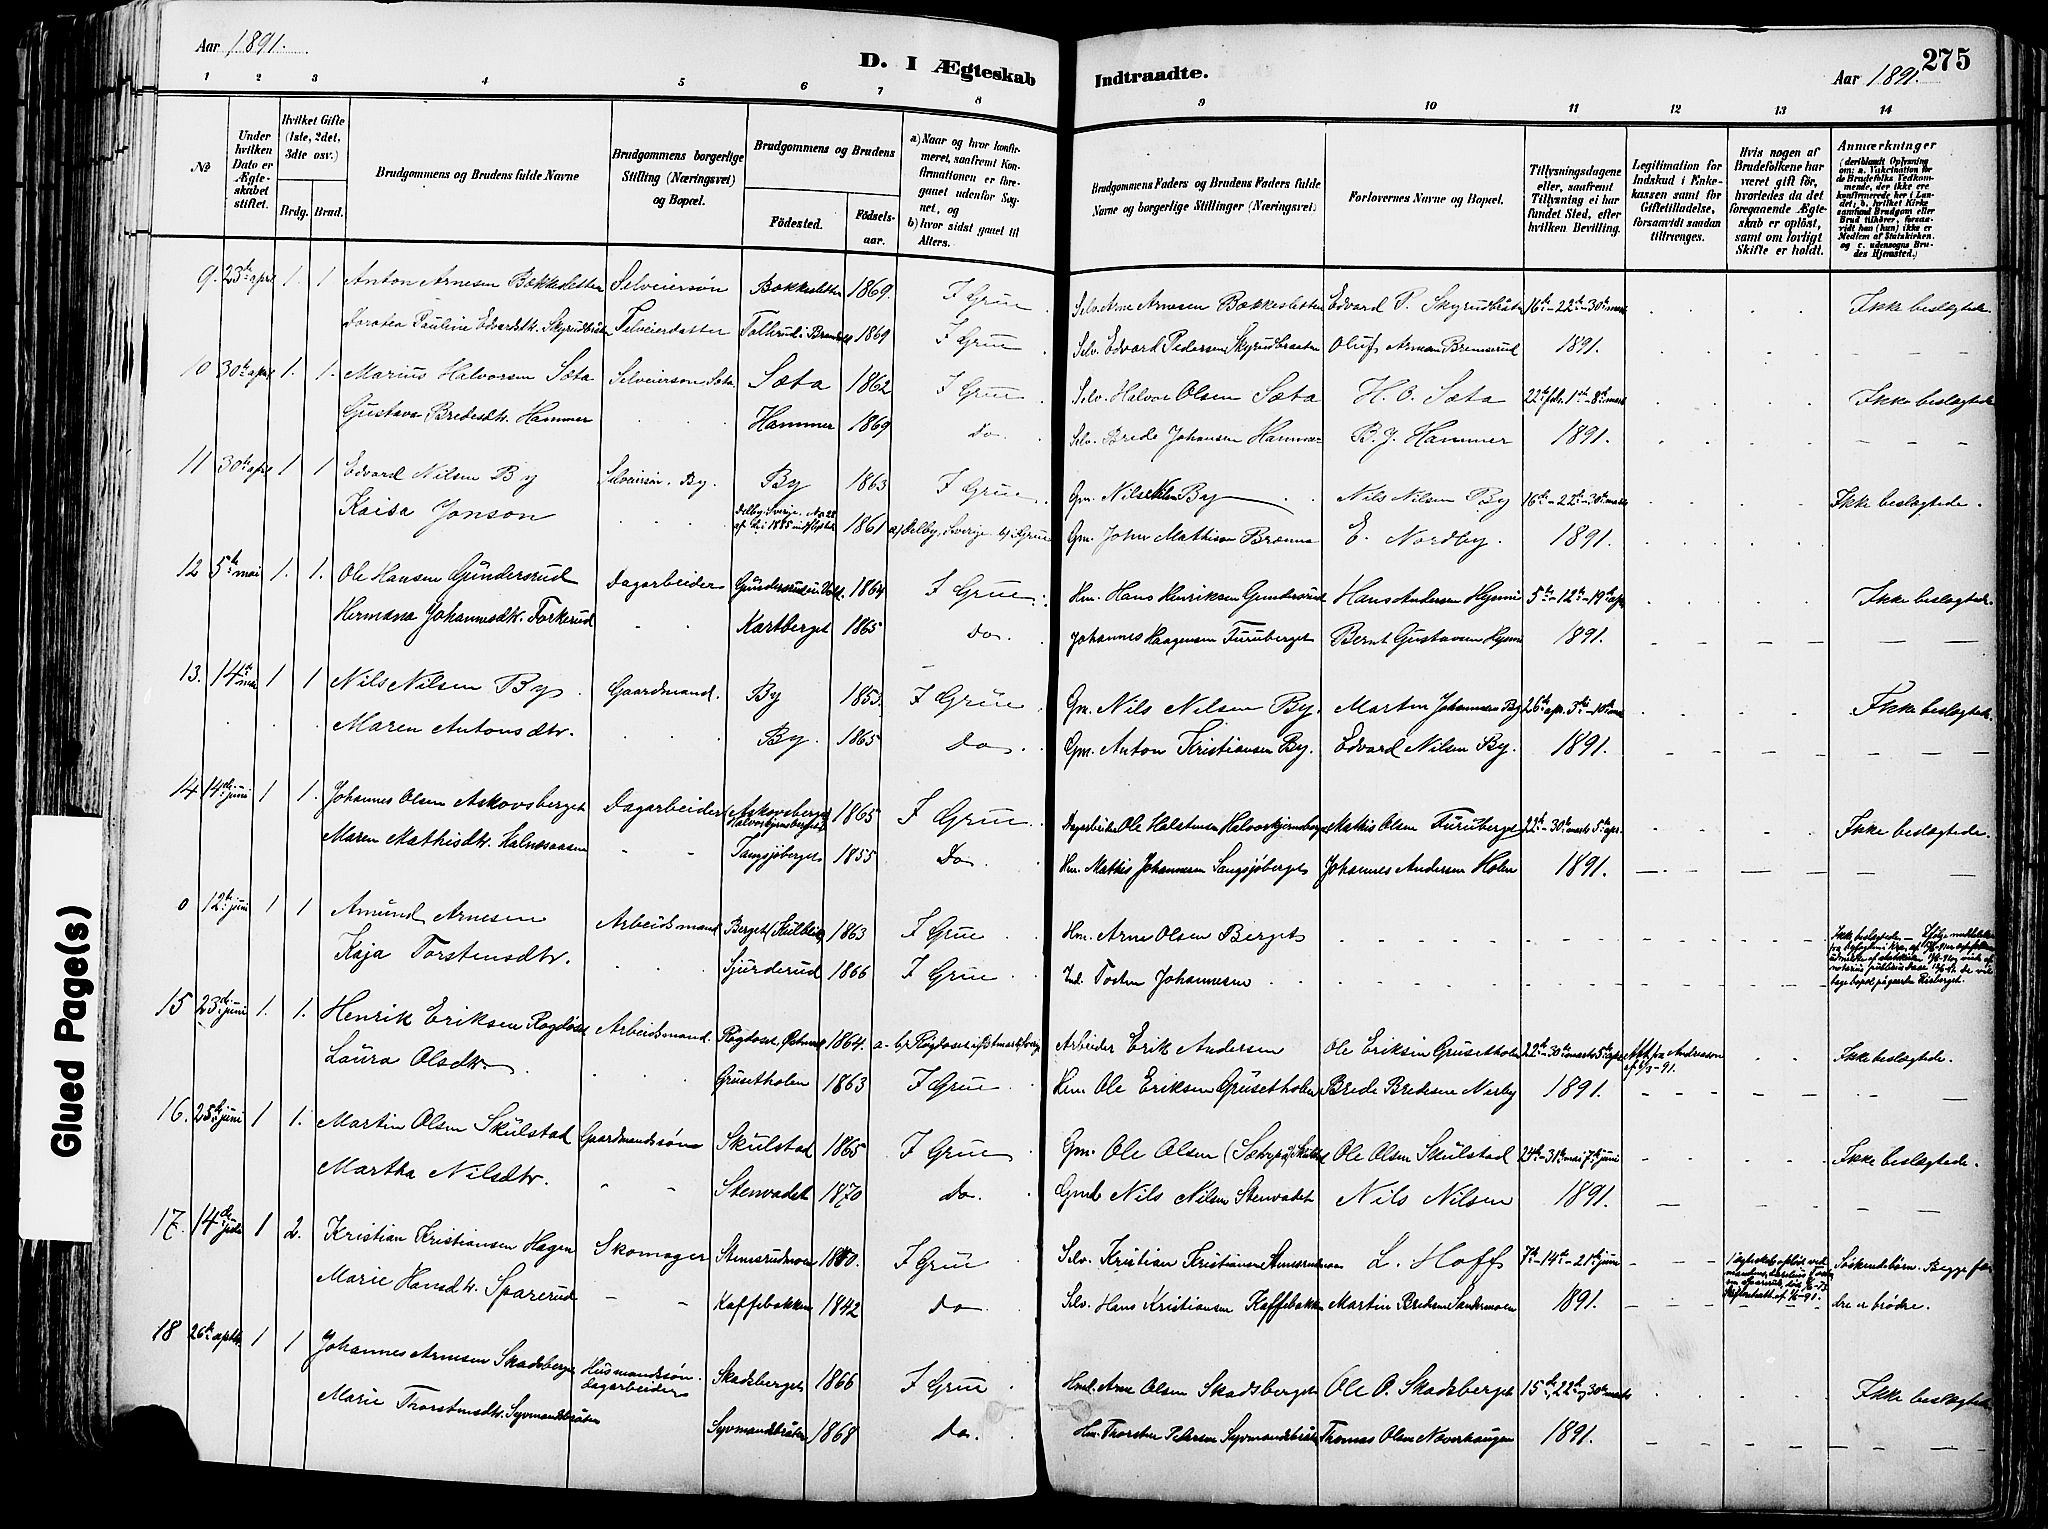 Aar 1891.
D. I Ægteskab Indtraadte.
275
Aar 1891.
1 2 3 4 5 6 7 8 9 10 11 12 13 14
No
Under hvilken Dato er Ægteskabet stiftet.
Hvilket Gifte (1ste, 2det, 3die osv.)
Brdg. Brud.
Brudgommens og Brudens fulde Navne
Brudgommens borgerlige Stilling (Næringsvei) og Bopæl.
Brudgommens og Brudens
Fødested. Fødselsaar.
a) Naar og hvor konfirmeret, saafremt Konfirmationen er foregaaet udenfor Sognet, og
b) hvor sidst gaaet til Alters.
Brudgommens Faders og Brudens Faders fulde Navne og borgerlige Stillinger (Næringsvei)
Forlovernes Navne og Bopæl.
Tillysningsdagene eller, saafremt Tillysning ei har fundet Sted, efter hvilken Bevilling.
Legitimation for Indskud i Enkekassen samt for Giftetilladelse, forsaavidt saadan tiltrænges.
Hvis nogen af Brudefolkene har været gift før, hvorledes da det foregaaende Ægteskab er opløst, samt om lovligt Skifte er holdt.
Anmærkninger
(deriblandt Oplysning om: a. Vakcination for de Brudefolks Vedkommende, der ikke ere konfirmerede her i Landet; b. hvilket Kirkesamfund Brudgom eller Brud tilhører, forsaavidt han (hun) ikke er Medlem af Statskirken, og c. udensogns Brudes Hjemsted.)
9. 23de april 1. 1 Anton Arnesen Bækkesletten Selveiersøn Bækkesletten 1869. I Grue Selv. Arne Arnesen Bækkesletten Edvard P. Skyrudbråten 16de-22de-30te mars Ikke beslægtede
Dorotea Pauline Edvardsdtr. Skyrudbråten Selveierdatter 1869 I Grue Selv. Edvard Pedersen Skyrudbraaten Oluf Arnesen 1891.
10 30te april 1. 1. Marius Halvorsen Sæta Selveiersøn Sæta Sæta 1862 I Grue Selv. Halvor Olsen Sæta H. O. Sæta 22de feb. 1ste-8de mars Ikke beslægtede
Gustava Bredesdtr. Hammer Hammer 1869 do. Selv. Brede Johansen Hammer B. J. Hammer 1891.
11 30te april 1 1 Edvard Nilsen By Selveiersøn. By. By 1863 I Grue Gm. Nils Nilsen By Nils Nilsen By 16de-22de-30te mars Ikke beslægtede.
Kaisa Jonson 1861 a) Dalby, Sverige b) I Grue Gm. John Mathison E. Nordby. 1891.
12 5te mai 1. 1. Ole Hansen Gundersrud Dagarbeider 1864 I Grue Hm. Hans Henriksen Gundersrud Hans Andersen Hymni 5te-12te-19de apr. Ikke beslægtede.
Hermana Johannesdtr. Torkerud Kartberget 1865 do. Johannes Haagensen Furuberget Bernt Gustavsen Hymni 1891.
13. 14de mai 1 1 Nils Nilsen By Gaardmand. By 1853. I Grue Gm. Nils Nilsen By. Martin Johannesen By 26de apr. 3de-10de mai Ikke beslægtede.
Maren Antonsdtr. By. 1865 do. Gm. Anton Kristiansen By. Edvard Nilsen By. 1891.
14 14de juni 1 1. Johannes Olsen Askovsberget Dagarbeider Askovsberget 1865 I Grue Dagarbeider Ole Halstensen Mathis Olsen Furuberget 22de-30te marts 5te apr. Ikke beslægtede.
Maren Mathisdtr. Kalnæsaasen Tangsjøberget 1855 do. Hm. Mathis Johannesen Tangsjøberget Johannes Andersen Holen 1891.
0 12te juni 1 1 Amund Arnesen Arbeidsmand Berget 1863 I Grue Hm. Arne Olsen Berget Ikke beslægtede
Kaja Torstensdtr. Sjurderud 1866 I Grue Ind. Tosten Johannesen
15 23de juni 1. 1. Henrik Eriksen Rogdoset Arbeidsmand. 1864. Arbeider Erik Andersen Ole Eriksen Grusetholen 22de-30te marts 5te apr. Ikke beslægtede.
Laura Olsdtr. Grusetholen 1863 I Grue Hm. Ole Eriksen Grusetholen Brede Bredesen Nerby 1891.
16. 25de juni 1 1. Martin Olsen Skulstad Gaardmandssøn Skulstad 1865 I Grue Gm. Ole Olsen Ole Olsen Skulstad 24de-31te mai 7de juni Ikke beslægtede.
Martha Nilsdtr. Stenvadet 1870 do. Gmd Nils Nilsen Stenvadet Nils Nilsen 1891.
17. 14de juli 1 2. Kristian Kristiansen Hagen Skomager Stemsrudmoen 1860. I Grue Selv. Kristian Kristiansen Stemsrudmoen L. Hoff 7de-14de-21de juni Søskendebørn. Begge fædre er brødre.
Marie Hansdtr. Sparerud Kaffebakken 1842 do. Selv. Hans Kristiansen Kaffebakken Martin Bredesen Sandermoen 1891.
18 26de april 1 1 Johannes Arnesen Skadsberget Husmandssøn. dagarbeider Skadsberget 1866 I Grue Hmd. Arne Olsen Skadsberget Ole O. Skadsberget 15de, 22de, 30te marts Ikke beslægtede
Marie Thorstensdtr. Syvmandsbråten Syvmandsbråten 1868 do. Hm. Thorsten Pedersen Syvmandsbråten Thomas Olsen Nøverhaugen 1891.
Glued Page(s)